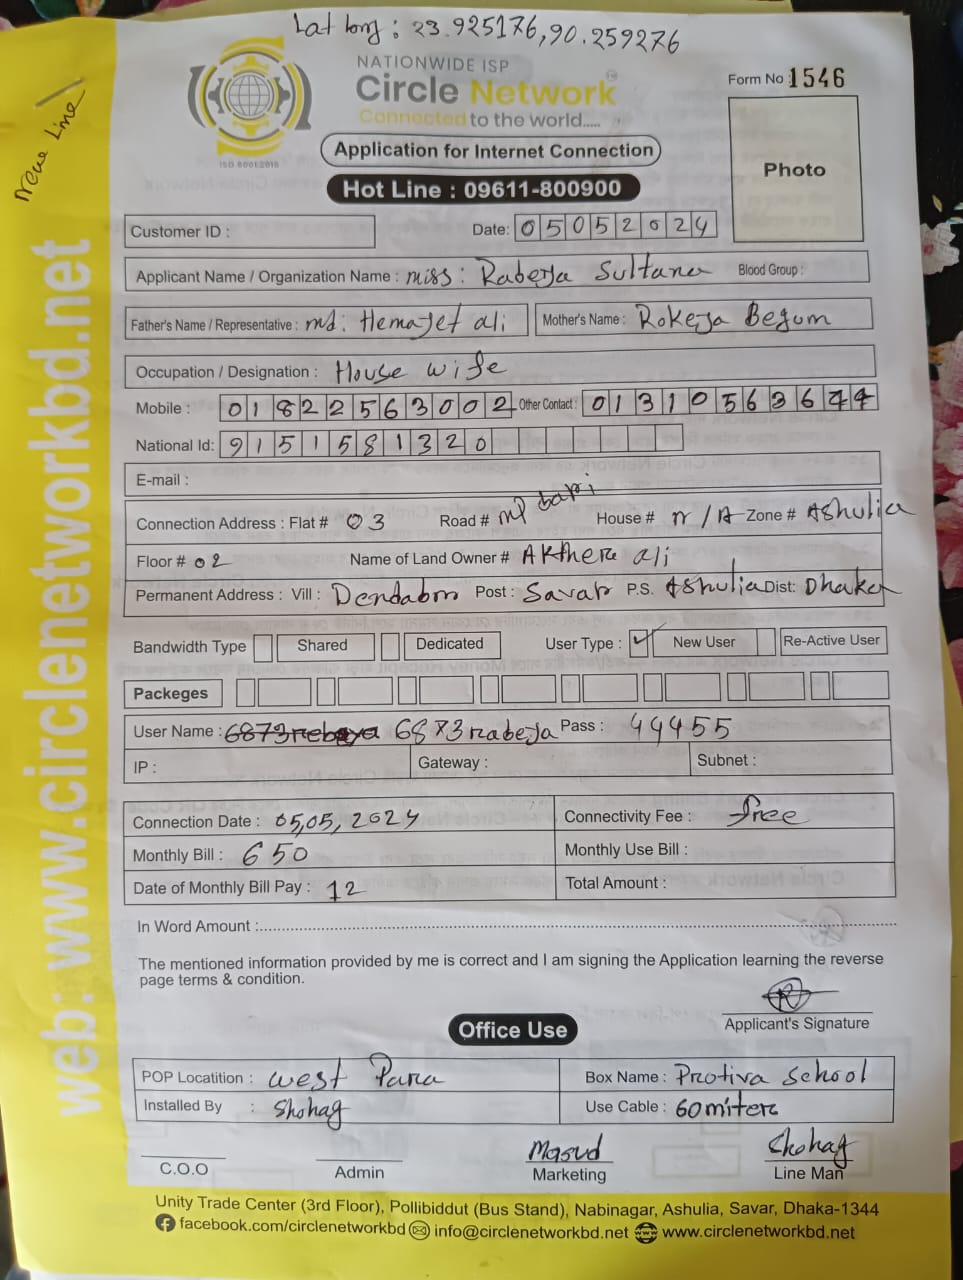 Lat long: 23.925176,90.259276
New Line
NATIONWIDE ISP
Circle Network
Connected to the world.....
ISO 9001:2015
Form No : 1546
Application for Internet Connection
Hot Line : 09611-800900
Photo
web: www.circlenetworkbd.net
Customer ID :
Date: 05052024
Applicant Name / Organization Name : miss: Rabeya Sultana Blood Group :
Father's Name / Representative : md: Hemayet ali Mother's Name : Rokeya Begum
Occupation / Designation : House wife
Mobile : 01822563002 Other Contact : 01310563644
National Id: 9151581320
E-mail :
Connection Address : Flat # 03 Road # bari House # N/A Zone # Ashulia
Floor # 02 Name of Land Owner # Akthera ali
Permanent Address : Vill : Dendabor Post : Savar P.S. Ashulia Dist: Dhaka
Bandwidth Type Shared Dedicated User Type : ✓ New User Re-Active User
Packeges
User Name : 6873rabeya Pass : 44455
IP : Gateway : Subnet :
Connection Date : 05,05,2024 Connectivity Fee : free
Monthly Bill : 650 Monthly Use Bill :
Date of Monthly Bill Pay : 12 Total Amount :
In Word Amount :
The mentioned information provided by me is correct and I am signing the Application learning the reverse
page terms & condition.
Applicant's Signature
Office Use
POP Locatition : west Para Box Name : Protiva School
Installed By : Shohag Use Cable : 60miter
Masud Shohag
C.O.O Admin Marketing Line Man
Unity Trade Center (3rd Floor), Pollibiddut (Bus Stand), Nabinagar, Ashulia, Savar, Dhaka-1344
facebook.com/circlenetworkbd info@circlenetworkbd.net www.circlenetworkbd.net